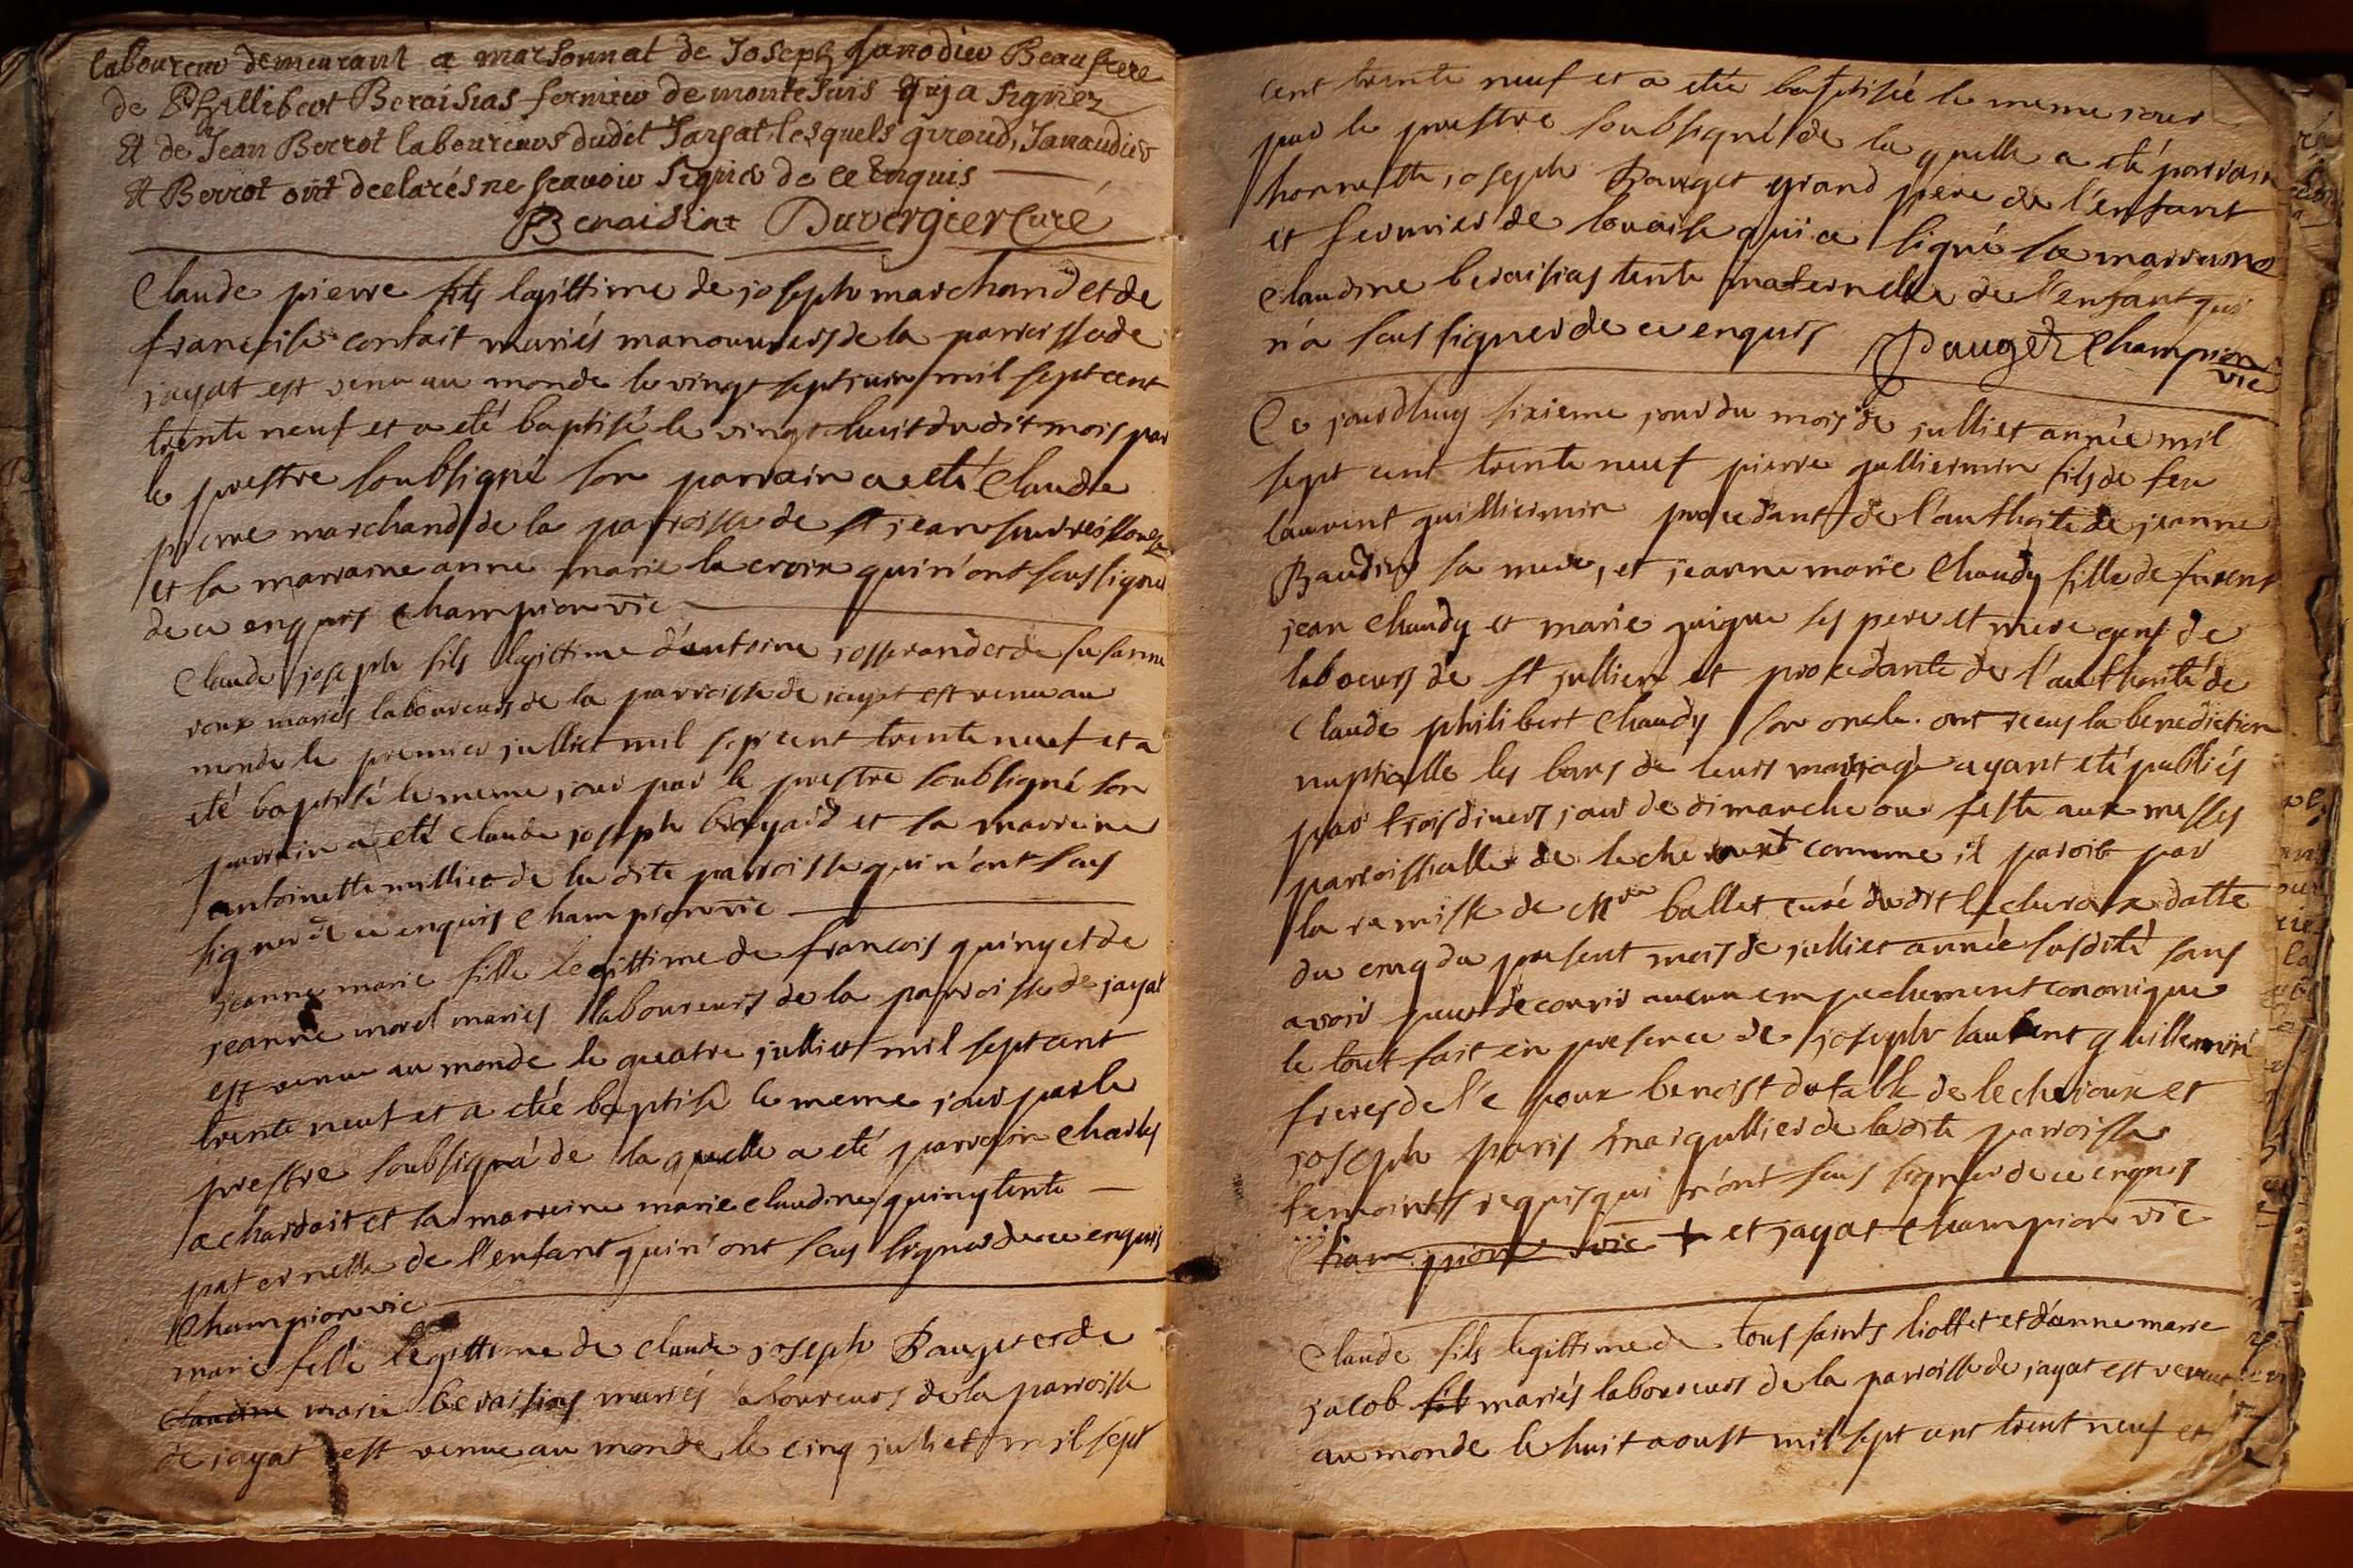 laboureur demeurant a marsonnat de Joseph Janodier Beaufrere
de Phillibert Beraisias fermier de montesuis qui a signez
Et de Jean Berrot laboureurs dudit Jayat, lesquels giroud, Janaudier
Et Berrot ont declarés ne scavoir signer de ce Enquis
Beraisiat Duvergier Curé
Claude pierre fils legittime de joseph marchand et de
francoise contait mariés manouvriers de la parroisse de
jayat est venu au monde le vingt sept juin mil sept cent
trente neuf et a eté baptisé le vingt huit du dit mois par
le prestre soubsigné son parrain a eté Claude
pierre marchand de la parroisse de st jean sur reissouse
et sa marraine anne marie la croix qui n'ont sus signer
de ce enquis Champion vic
Claude joseph fils legittime d'antoine josserand et de susanne
roux mariés laboureurs de la parroisse de jayat est venu au
monde le premier julliet mil sept cent trente neuf et a
eté baptisé le meme jour par le prestre soubsigné son
parrain a eté Claude joseph brayard et sa marraine
antoinette milliet de la dite parroisse qui n'ont sus
signer de ce enquis Champion vic
jeanne marie fille legittime de francois quiny et de
jeanne morel mariés laboureurs de la parroisse de jayat
est venue au monde le quatre julliet mil sept cent
trente neuf et a etée baptisé le meme jour par le
prestre soubsigné de la quelle a eté parrain Charles
achardait et sa marraine marie claudine quiny tente
paternelle de l'enfant qui n'ont sus signer de ce enquis
Champion vic
marie fille legittime de claude joseph Pauget et de
claudine marie beraisias mariés laboureurs de la parroisse
de jayat est venue au monde le cinq julliet mil sept
cent trente neuf et a etée baptisée le meme jour
par le prestre soubsigné de la quelle a eté parrain
honneste joseph Pauget grand pere de l'enfant
et fermier de louaise qui a signé sa marraine
Claudine beraisias tente maternelle de l'enfant qui
n'a sus signer de ce enquis Pauget Champion
vic
Ce jourdhuy sixieme jour du mois de julliet année mil
sept cent trente neuf pierre guilliermin fils de feu
laurent guilliermin procedant de l'authorite de jeanne
Baudin sa mere, et jeanne marie Chaudy fille de furent
jean Chaudy et marie guigue ses pere et mere gens de
labeurs de st jullien et procedante de l'authorité de
Claude philibert Chaudy son oncle ont receus la benediction
nuptialle les bans de leurs mariage ayant eté publiés
par trois divers jour de dimanche ou feste aux messes
parroissialles de lecheroux comme il paroit par
la remisse de Mre ballet curé du dit lecheroux datte
du cinq du present mois de julliet année susdite sans
avoir peu decouvrir aucun empechement cononique
le tout fait en presence de joseph laurent guillermin
freres de l'epoux benoist dutable de lecheroux et
joseph paris marguillier de la dite parroisse
temoints requis qui n'ont sus signer de ce enquis
Champion vic + et jayat Champion vic
Claude fils legittime de toussaints liottet et d'anne marie
jacob fils mariés laboureurs de la parroisse de jayat est venu
au monde le huit aoust mil sept cent trent neuf et